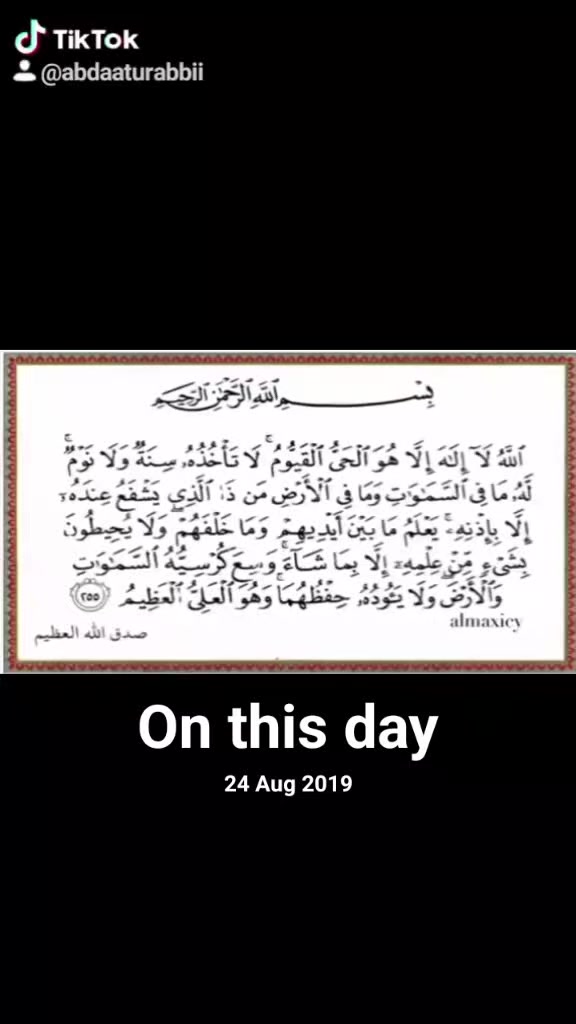 TikTok
@abdaaturabbii
بِسْمِ اللَّهِ الرَّحْمَٰنِ الرَّحِيمِ
اللَّهُ لَآ إِلَٰهَ إِلَّا هُوَ الْحَيُّ الْقَيُّومُ ۚ لَا تَأْخُذُهُۥ سِنَةٌ وَلَا نَوْمٌ ۚ
لَّهُۥ مَا فِي السَّمَٰوَٰتِ وَمَا فِي الْأَرْضِ ۗ مَن ذَا الَّذِي يَشْفَعُ عِندَهُۥٓ
إِلَّا بِإِذْنِهِۦ ۚ يَعْلَمُ مَا بَيْنَ أَيْدِيهِمْ وَمَا خَلْفَهُمْ ۖ وَلَا يُحِيطُونَ
بِشَيْءٍ مِّنْ عِلْمِهِۦٓ إِلَّا بِمَا شَآءَ ۚ وَسِعَ كُرْسِيُّهُ السَّمَٰوَٰتِ
وَالْأَرْضَ ۖ وَلَا يَـُٔودُهُۥ حِفْظُهُمَا ۚ وَهُوَ الْعَلِيُّ الْعَظِيمُ ٢٥٥
almaxicy
صدق الله العظيم
On this day
24 Aug 2019